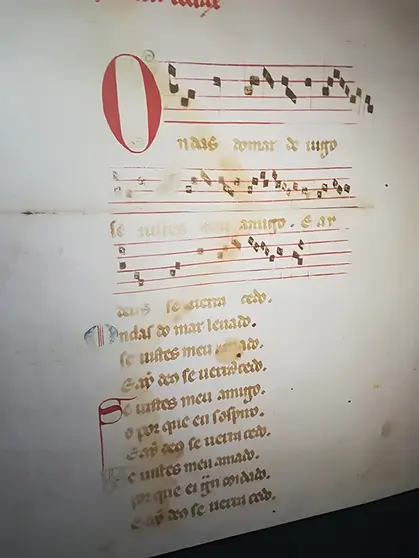 Ondas do mar de uigo
se uistes meu amigo. E ay
deus se uerra cedo.
Ondas do mar leuado.
se uistes meu amado.
E ay deo se uerra cedo.
Se uistes meu amigo.
o por que eu sospiro.
E ay deo se uerra cedo.
Se uistes meu amado.
por que ei gñ coidado.
E ay deo se uerra cedo.